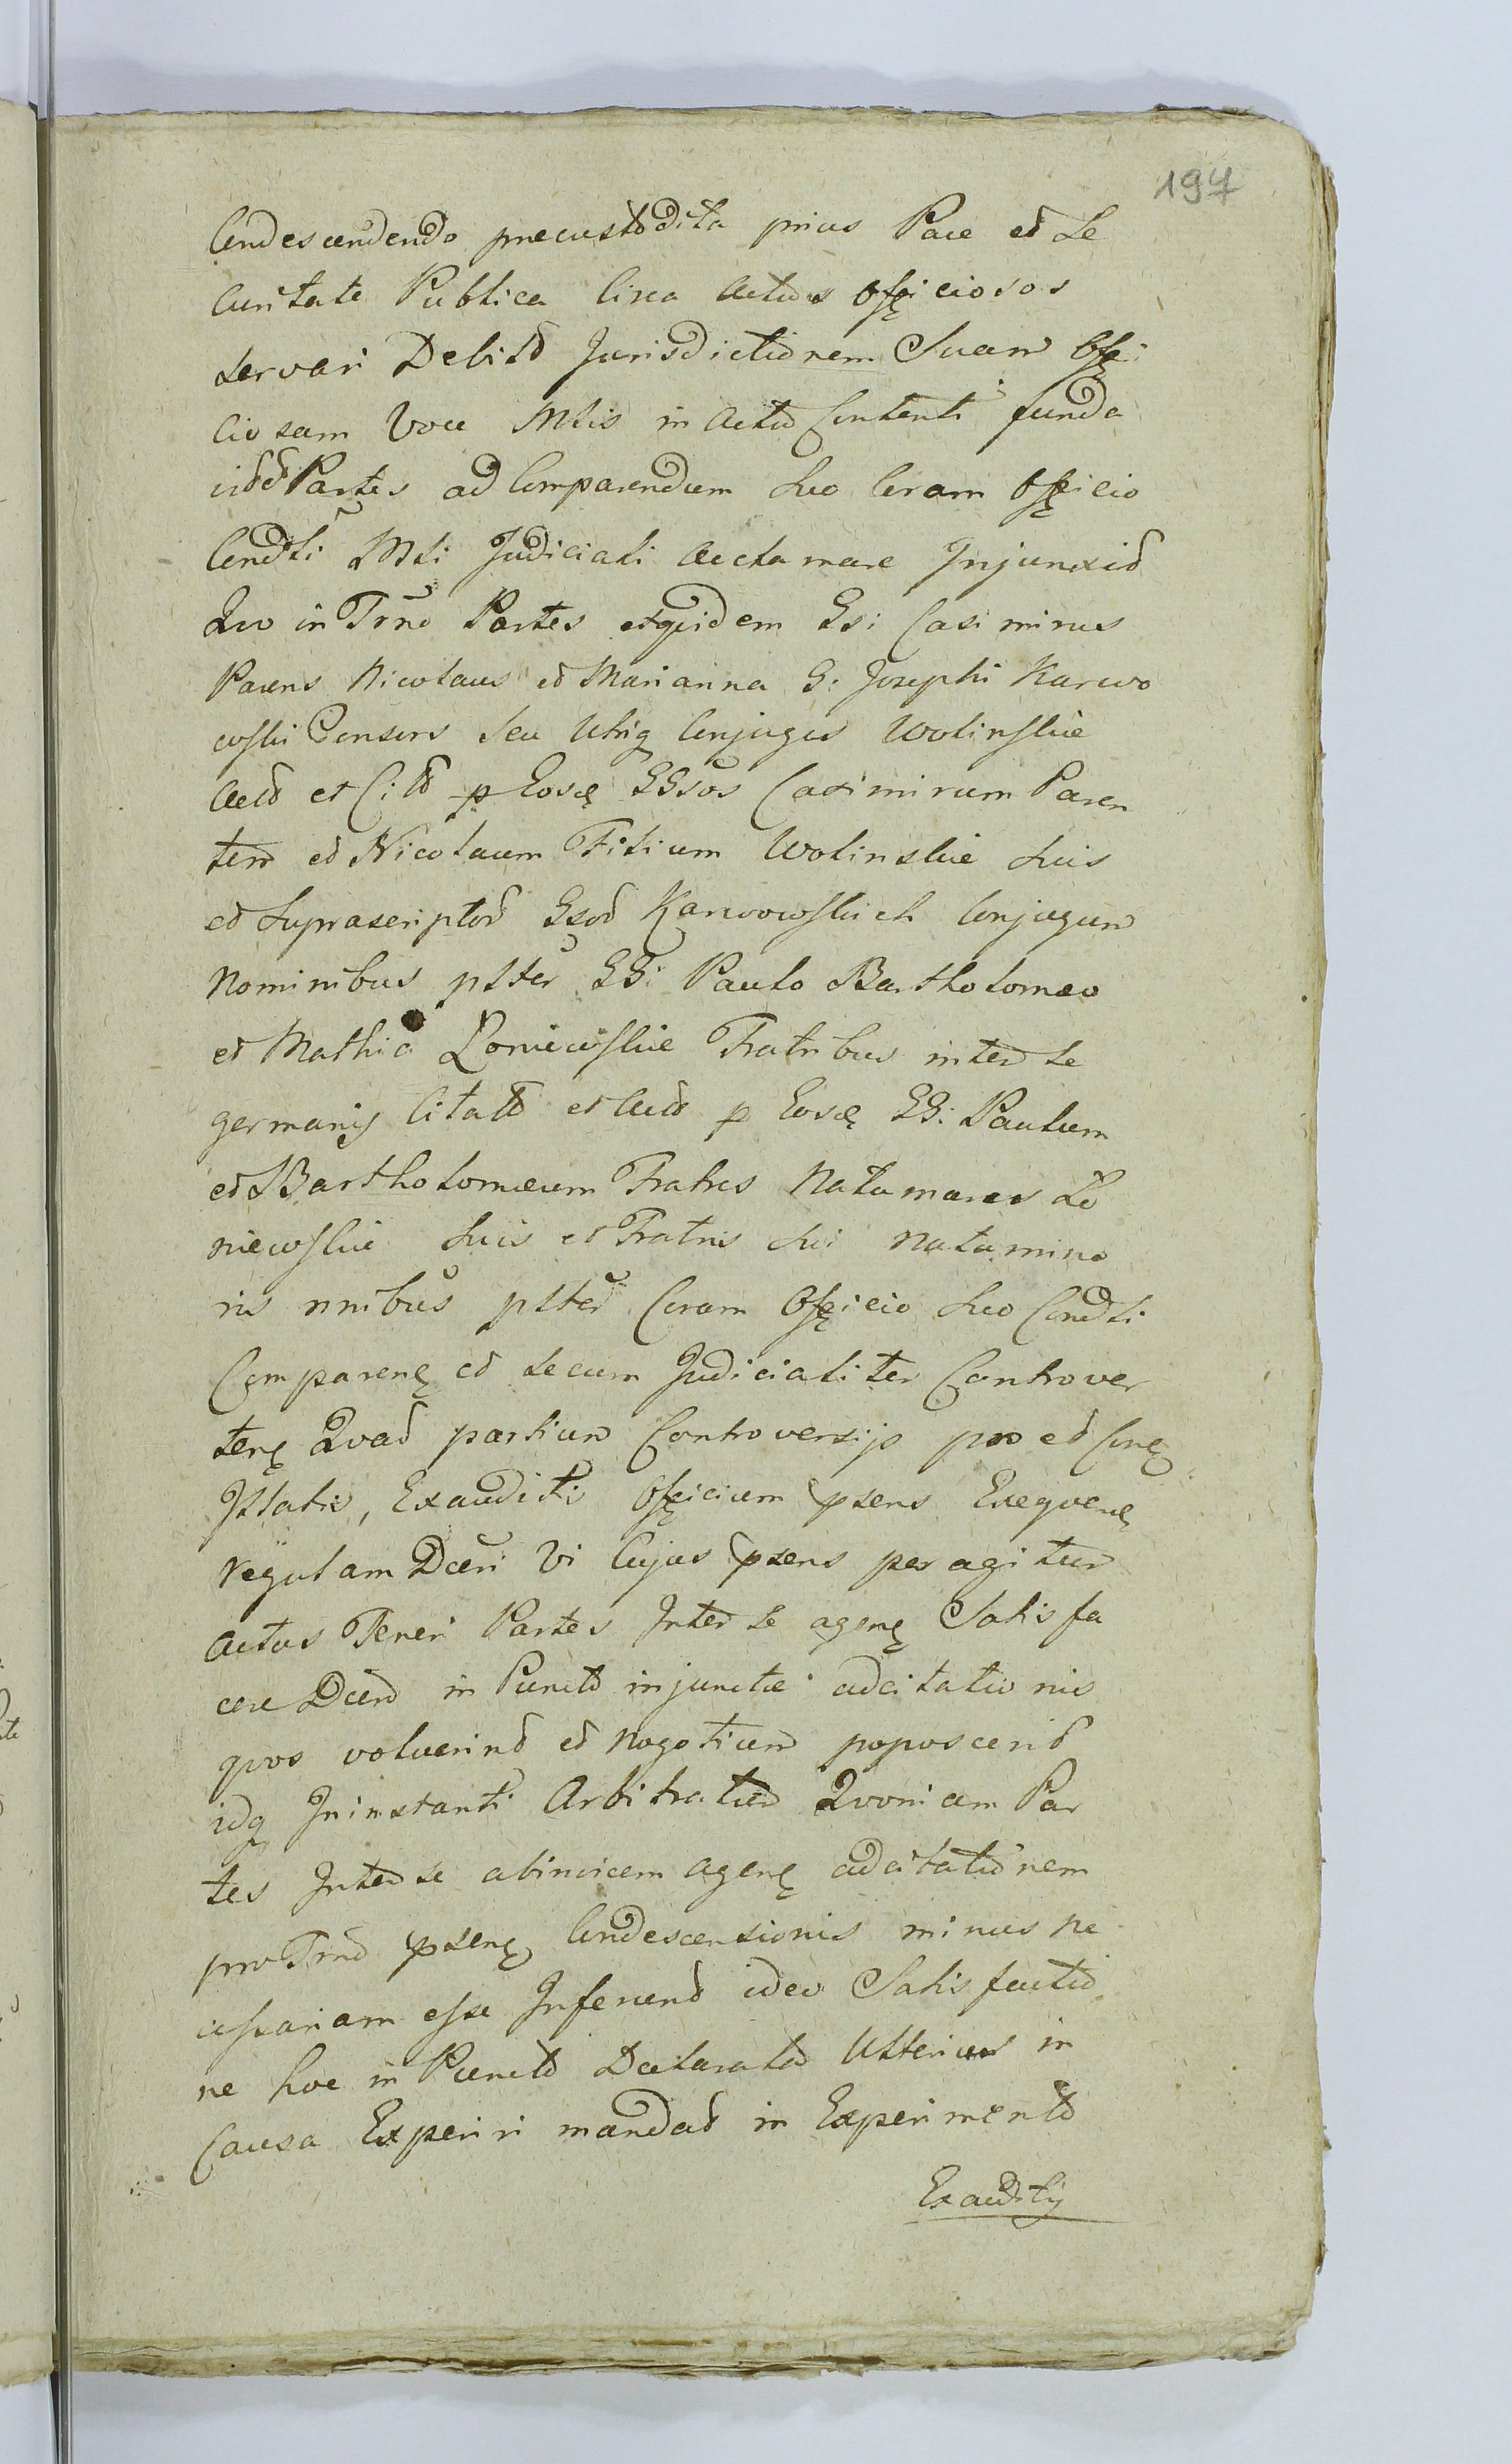 197
Condescendendo praecustodita prius Pace et Se
curitate Publica Circa Actus officiosos
servari Debito Jurisdictionem Suam offi
ciosam Voce Mlis in Actu Contenti funda
Partes ad Comparendum Suo Coram officio
Condsti Mli Judiciali acclamare Injunxit
Quo in Trno Partes etquidem Gsi Casimirus
Parens Nicolaus et Marianna G: Josephi Karwo
wski Consors seu Utriq Conjuges Wolinskie
Act et Citt p Eosd GGsos Casimirum Paren
tem et Nicolaum Filium Wolinskie suis
et suprascriptor Gsor Karwowskich Conjugum
Nominibus plter GG: Paulo Bartholomeo
et Mathia Loniewskie Fratribus inter se
germanis Citatt et Act p Eosd GG: Paulum
et Bartholomeum Fratres Natumaiores Lo
niewskie suis et Fratris sui natumino
ris nnibus plter Coram officio suo Condsti
Comparen et secum Judicialiter Controver
ten Quar partium Controversijs pro et Con
Illatis, Exauditis officium psens Exequen
regulam Dcti Vi Cujus psens peragitur
actus Teneri Partes Inter se agen Satisfa
cere Dcto in Puncto injunctae adcitationis
quos voluerint et Negotium poposcerit
idq Ininstanti Arbitratur Quoniam Par
tes Inter se abinvicem agen adcitationem
pro Trno psen Condescensionis minus ne
cessariam esse Inferunt ideo Satisfactio
ne hoc in Puncto Declarata Ulterius in
Causa Experiri mandat in Experimento
Exauditis